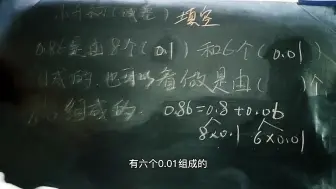 填空
0.86是由8个(0.1)和6个(0.01)
组成的,也可以看做是由( )个
组成的. 0.86=0.8+0.06
8×0.1 6×0.01
有六个0.01组成的